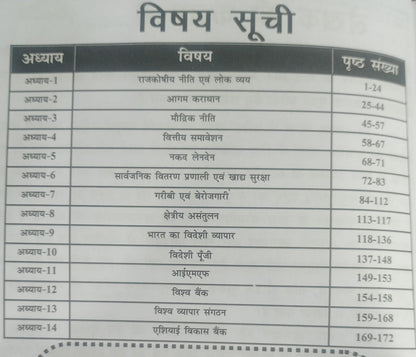 विषय सूची
अध्याय विषय पृष्ठ संख्या
अध्याय-1 राजकोषीय नीति एवं लोक व्यय 1-24
अध्याय-2 आगम कराधान 25-44
अध्याय-3 मौद्रिक नीति 45-57
अध्याय-4 वित्तीय समावेशन 58-67
अध्याय-5 नकद लेनदेन 68-71
अध्याय-6 सार्वजनिक वितरण प्रणाली एवं खाद्य सुरक्षा 72-83
अध्याय-7 गरीबी एवं बेरोजगारी 84-112
अध्याय-8 क्षेत्रीय असंतुलन 113-117
अध्याय-9 भारत का विदेशी व्यापार 118-136
अध्याय-10 विदेशी पूँजी 137-148
अध्याय-11 आईएमएफ 149-153
अध्याय-12 विश्व बैंक 154-158
अध्याय-13 विश्व व्यापार संगठन 159-168
अध्याय-14 एशियाई विकास बैंक 169-172